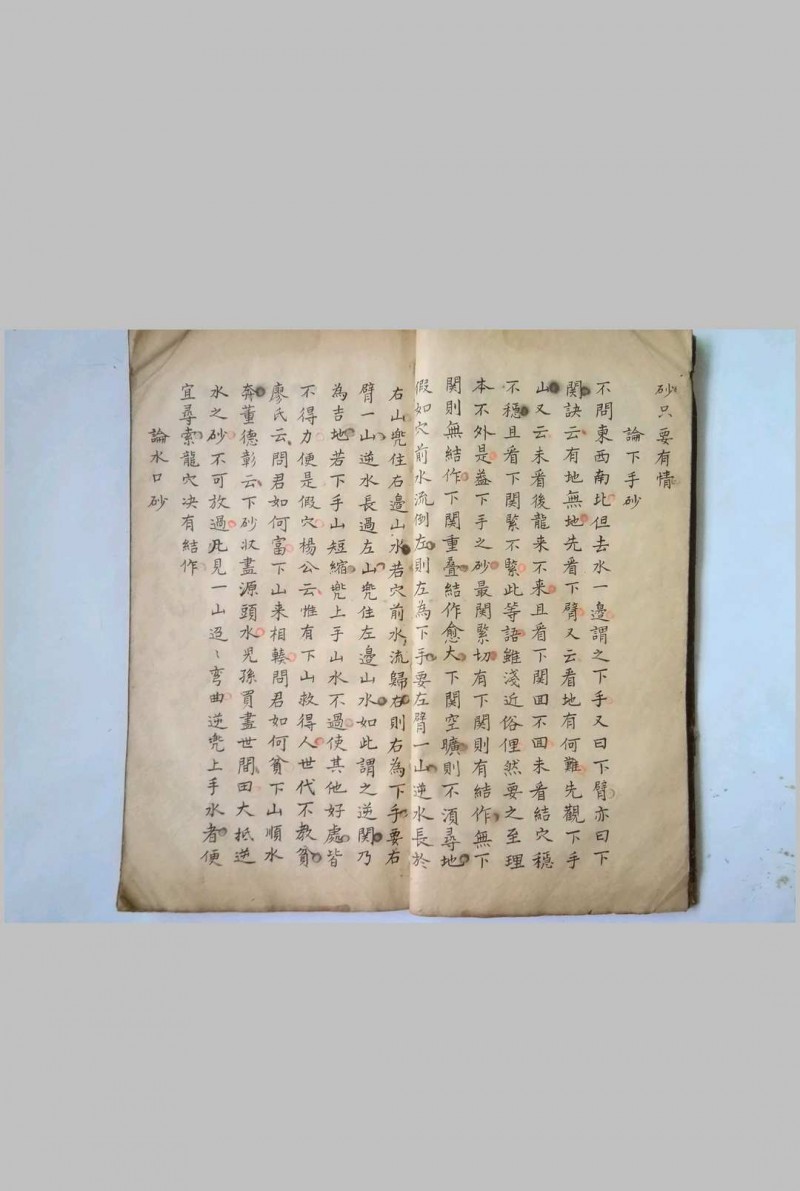 砂只要有情
論下手砂
不問東西南北但去水一邊謂之下手又曰下臂亦曰下
関訣云有地無地先看下臂又云看地有何難先觀下手
山又云未看後龍来不来且看下関囬不囬未看結穴穏
不穏且看下関緊不緊此等語雖淺近俗俚然要之至理
本不外是葢下手之砂最関緊切有下関則有結作無下
関則無結作下関重疊結作愈大下関空曠則不須尋地
假如穴前水流倒左則左為下手要左臂一山逆水長於
右山兠住右邊山水若穴前水流歸右則右為下手要右
臂一山逆水長過左山兠住左邊山水如此謂之逆関乃
為吉地若下手山短縮兠上手山水不過使其他好處皆
不得力便是假穴楊公云惟有下山救得人世代不教貧
廖氏云問君如何富下山来相輳問君如何貧下山順水
奔董德彰云下砂收盡源頭水児孫買盡世間田大抵逆
水之砂不可放過凡見一山迢〻彎曲逆兠上手水者便
宜尋索龍穴决有結作
論水口砂